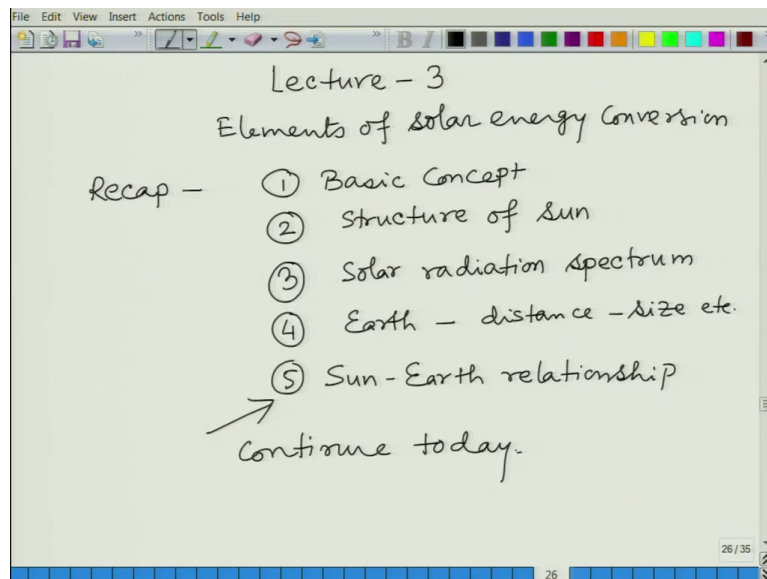 File Edit View Insert Actions Tools Help
B I
Lecture - 3
Elements of solar energy Conversion
Recap - ① Basic Concept
② Structure of sun
③ Solar radiation spectrum
④ Earth - distance - size etc.
⑤ Sun - Earth relationship
Continue today.
26/35
26